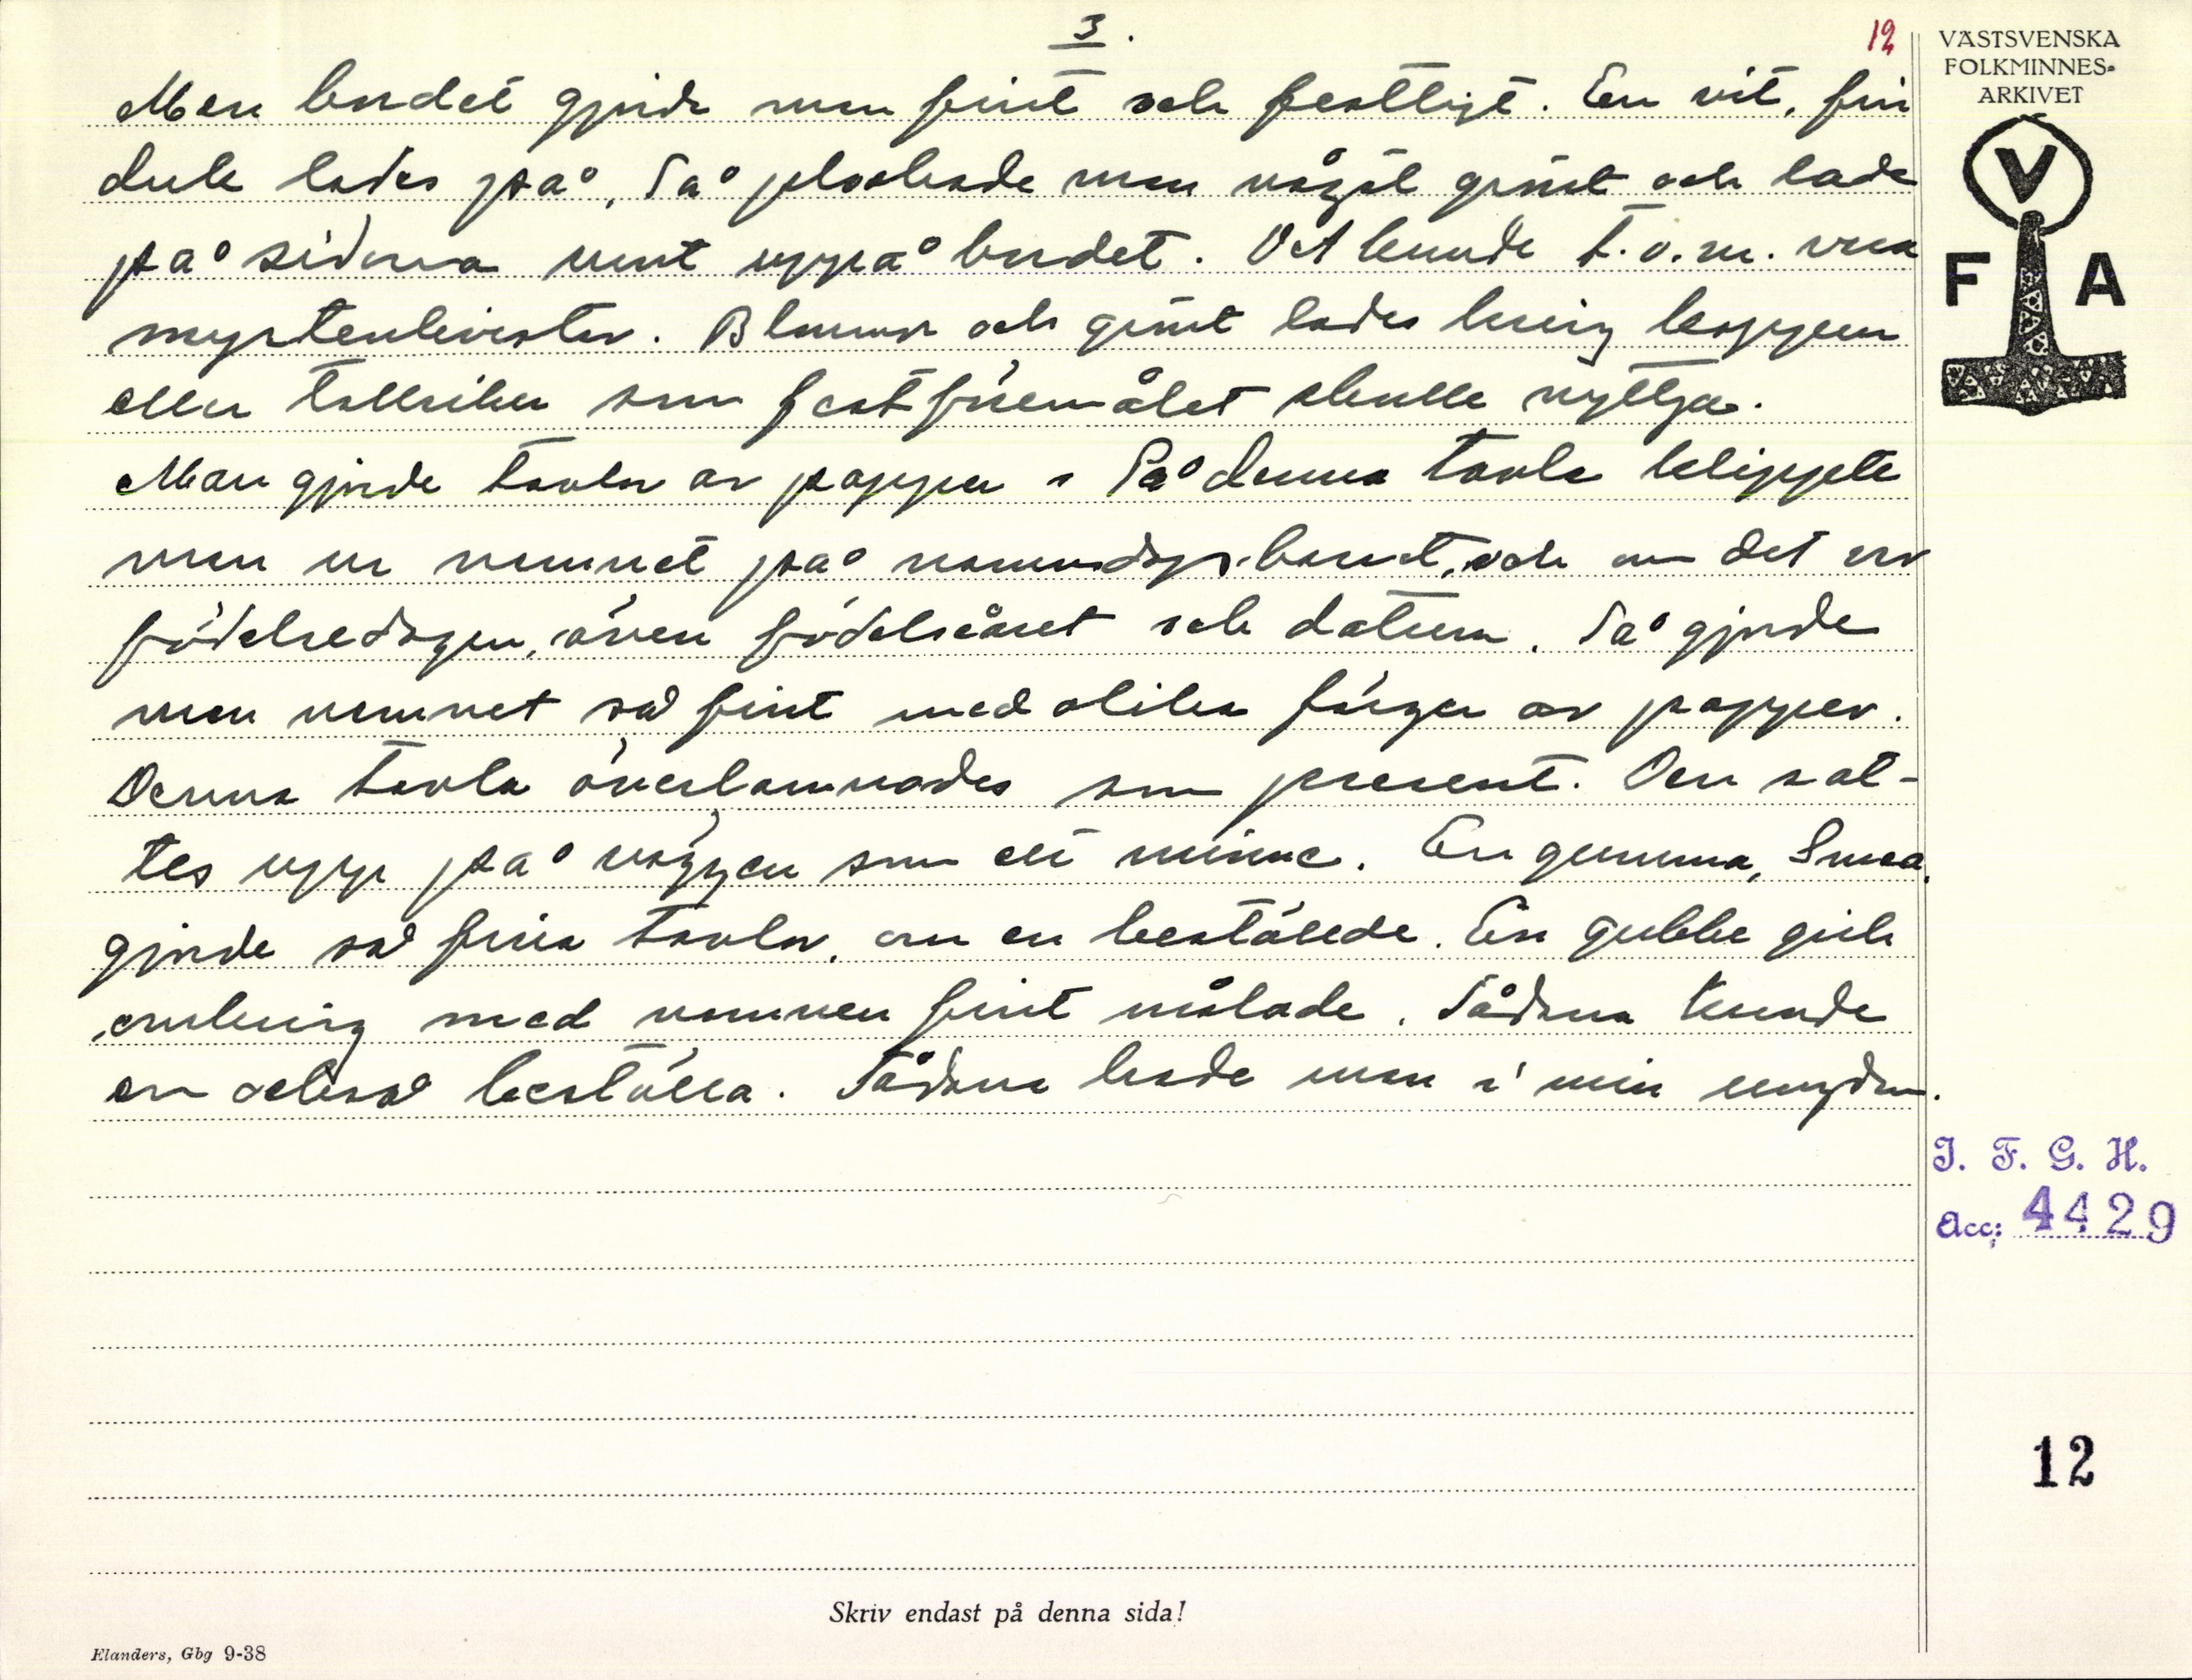 3.
12
VÄSTSVENSKA
FOLKMINNES-
ARKIVET
V
F A
Men bordet gjorde man fint och festligt. En vit, fin
duk lades på. Så plockade man något grönt och lade
på sidorna runt uppå bordet. Det kunde t.o.m. vara
myrtenkvistar. Blommor och grönt lades kring koppen
eller tallriken som festföremålet skulle nyttja.
Man gjorde tavlor av papper. På denna tavla klippte
man ur namnet på namnsdagsbarnet, och om det var
födelsedagen, även födelseåret och datum. Så gjorde
man namnet så fint med olika färger av papper.
Denna tavla överlämnades som present. Den sat-
tes upp på väggen som ett minne. En gumma,
gjorde så fina tavlor, om en beställde. En gubbe gick
omkring med namnen fint målade. Sådana kunde
en också beställa. Sådana hade man i min ungdom.
I. F. G. H.
Acc; 4429
12
Skriv endast på denna sida!
Elanders, Gbg 9-38